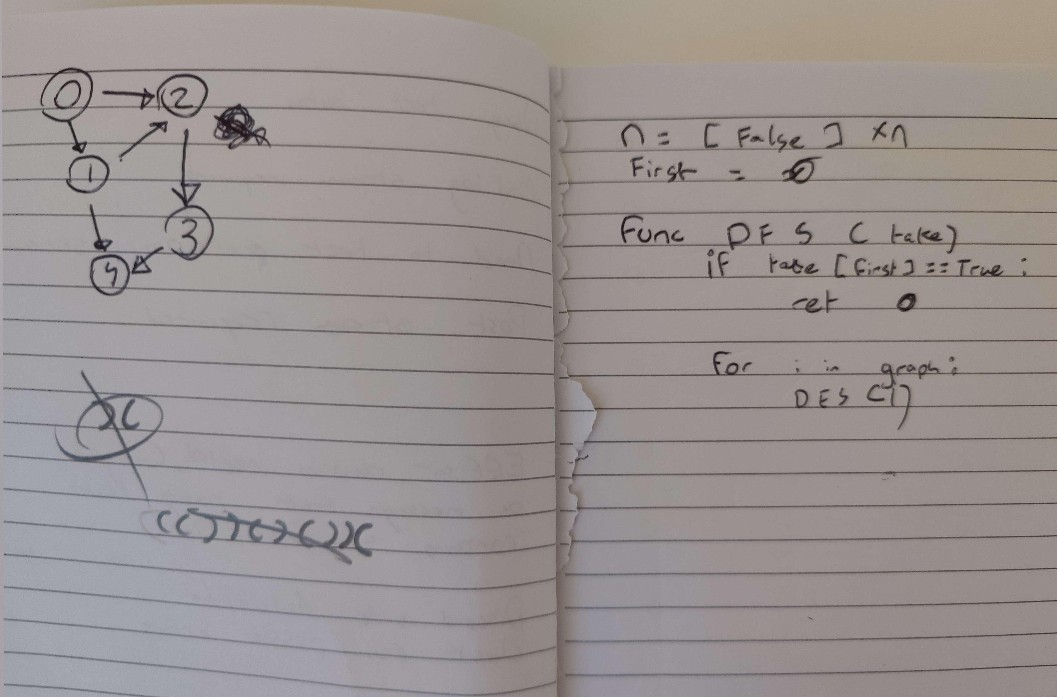 0
2
1
3
4
n = [ False ] × n
First = 0
Func DFS ( take)
if take [First] == True :
ret 0
For i in graph :
DFS (i)